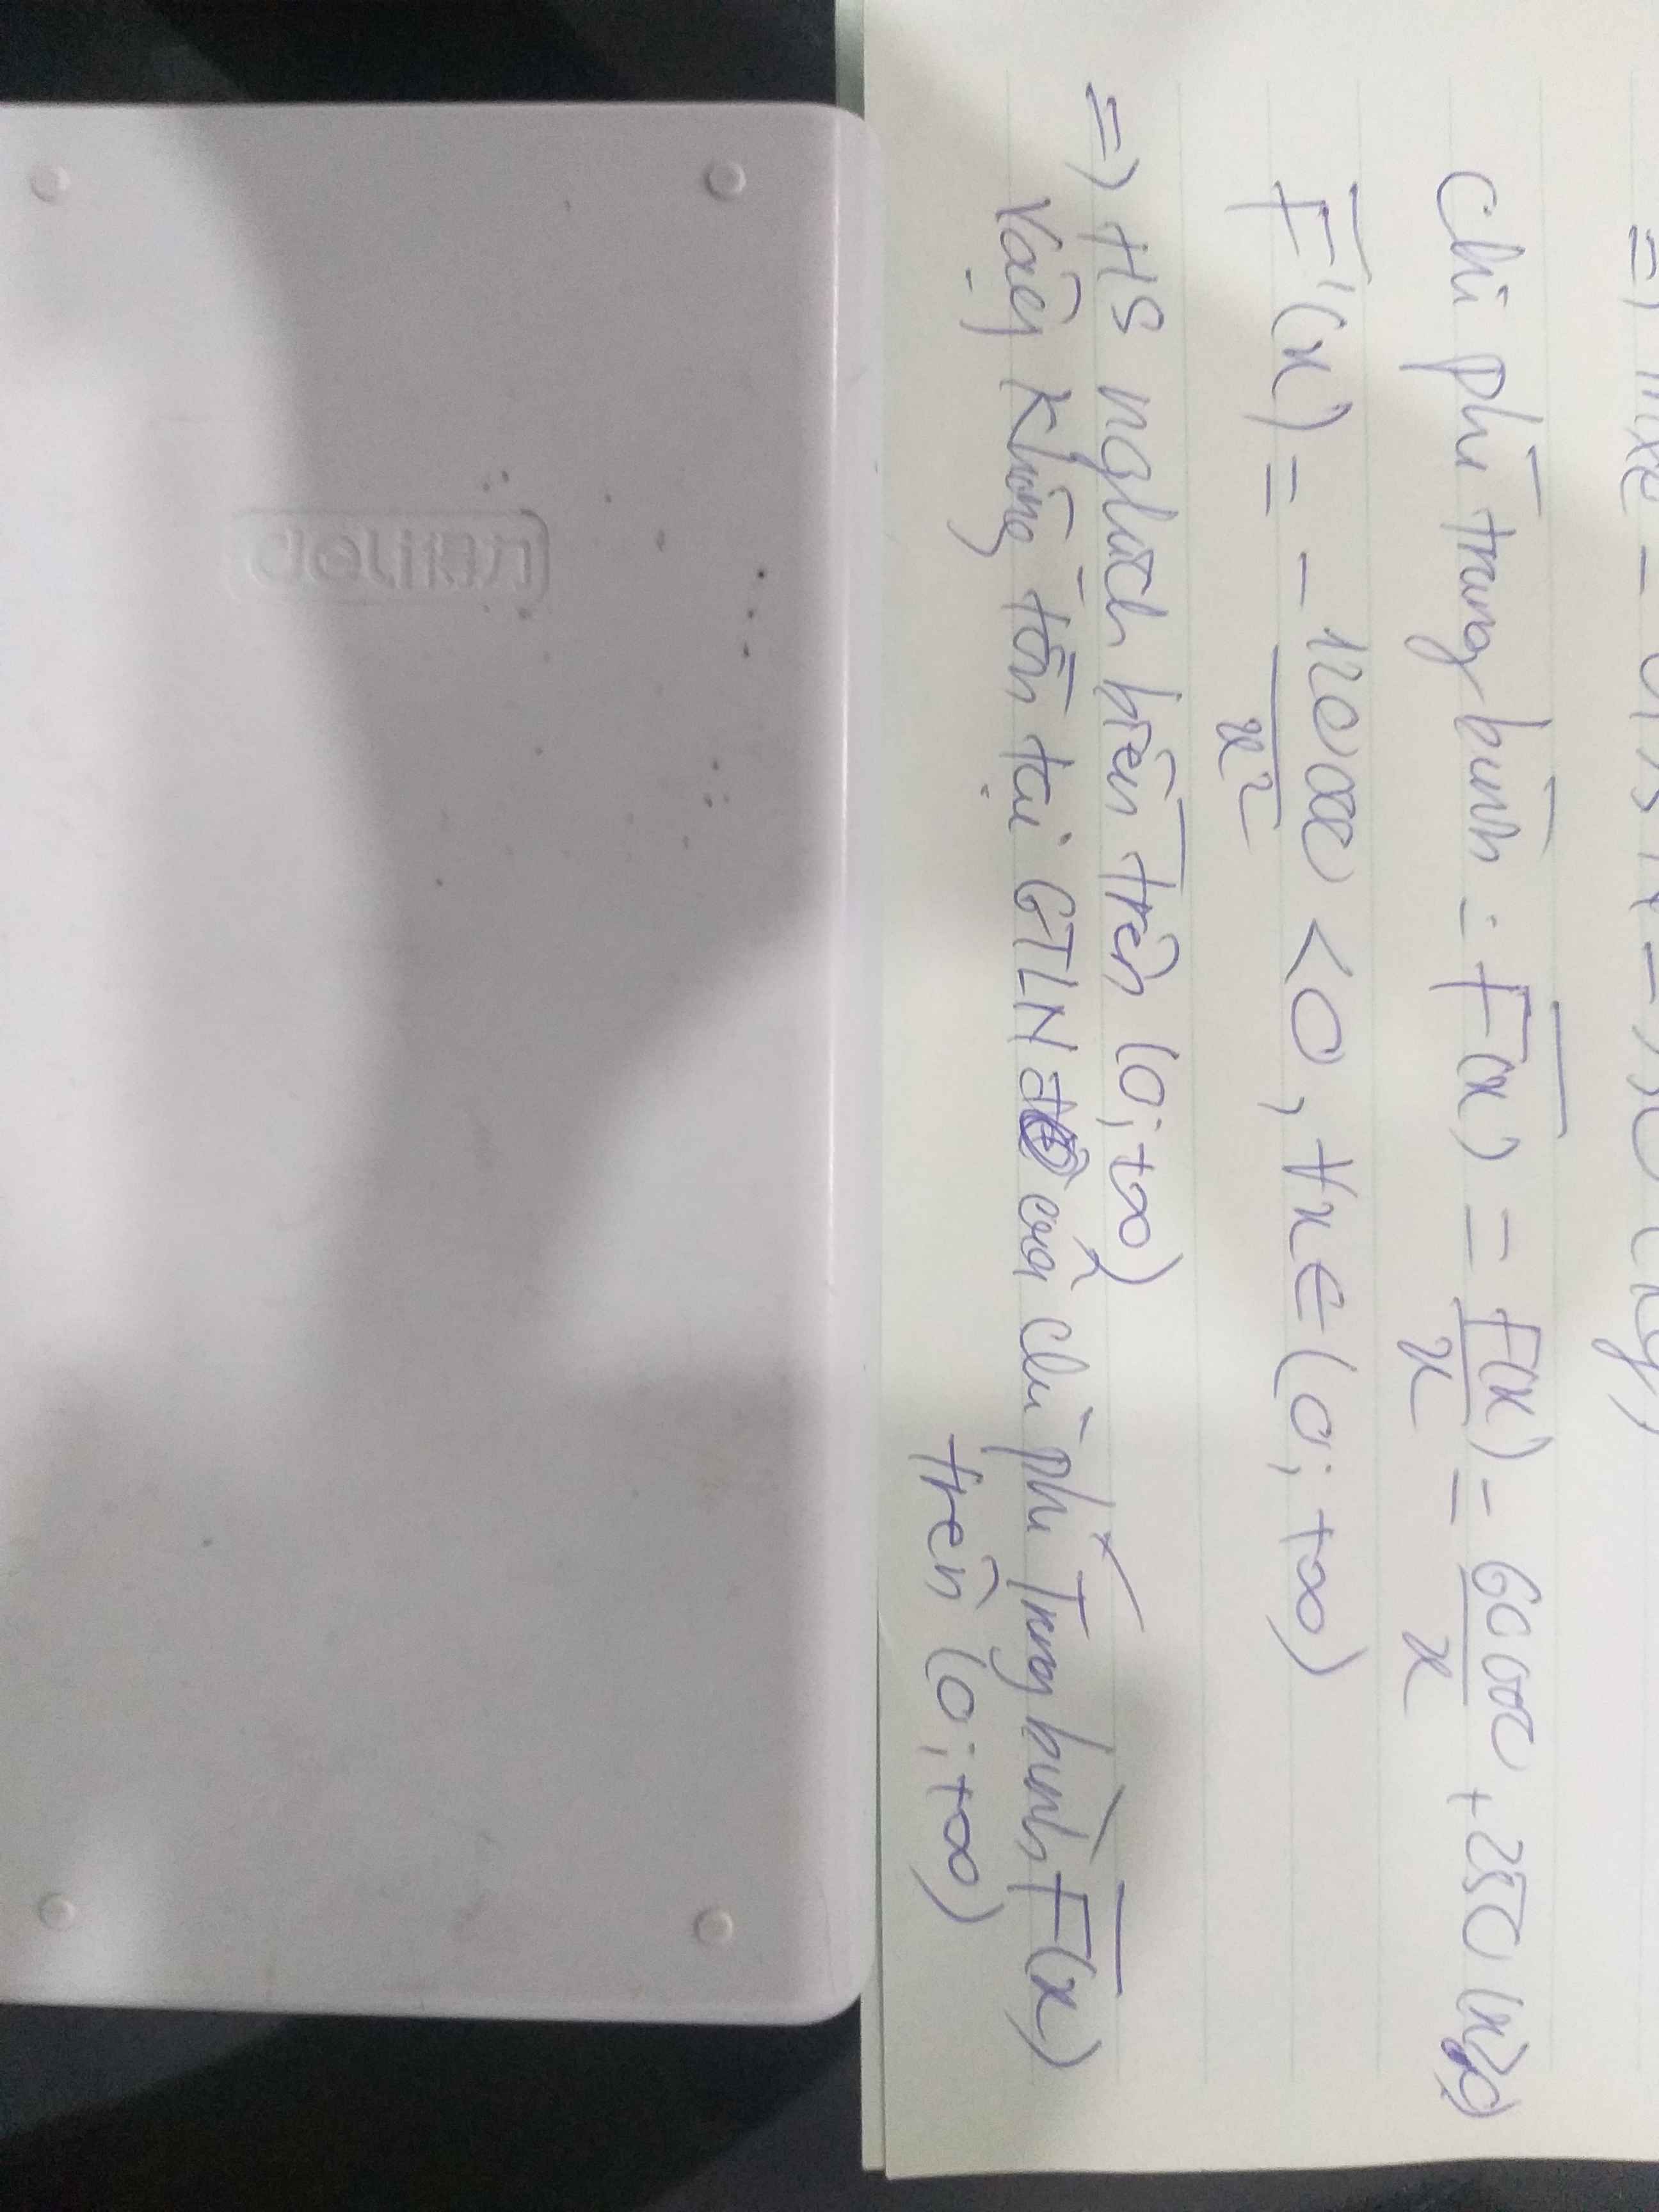 Chi phí trung bình : F̅(x) = F(x)/x = 6000/x + 250 (kg)
F̅'(x) = - 12000/x² < 0, ∀x ∈ (0; +∞)
=) HS nghịch biến trên (0; +∞)
Vậy không tồn tại GTLN của chi phí Trung bình F̅(x)
trên (0; +∞)
deli得力